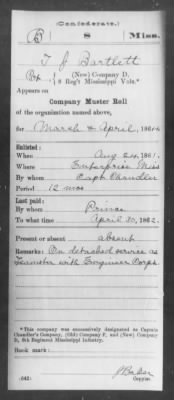 (Confederate.)
B 8 Miss.
T J Bartlett
Pvt (New) Company D,
8 Reg't Mississippi Vols.*
Appears on
Company Muster Roll
of the organization named above,
for March & April, 1862
Enlisted:
When Aug 24, 1861.
Where Enterprise Miss
By whom Capt Chandler
Period 12 mos
Last paid:
By whom Prince
To what time April 30, 1862.
Present or absent absent
Remarks: On detached service as
Teamster with Engineer Corps.
*This company was successively designated as Captain
Chandler's Company, (Old) Company F, and (New) Company
D, 8th Regiment Mississippi Infantry.
Book mark:
(642)
Copyist.